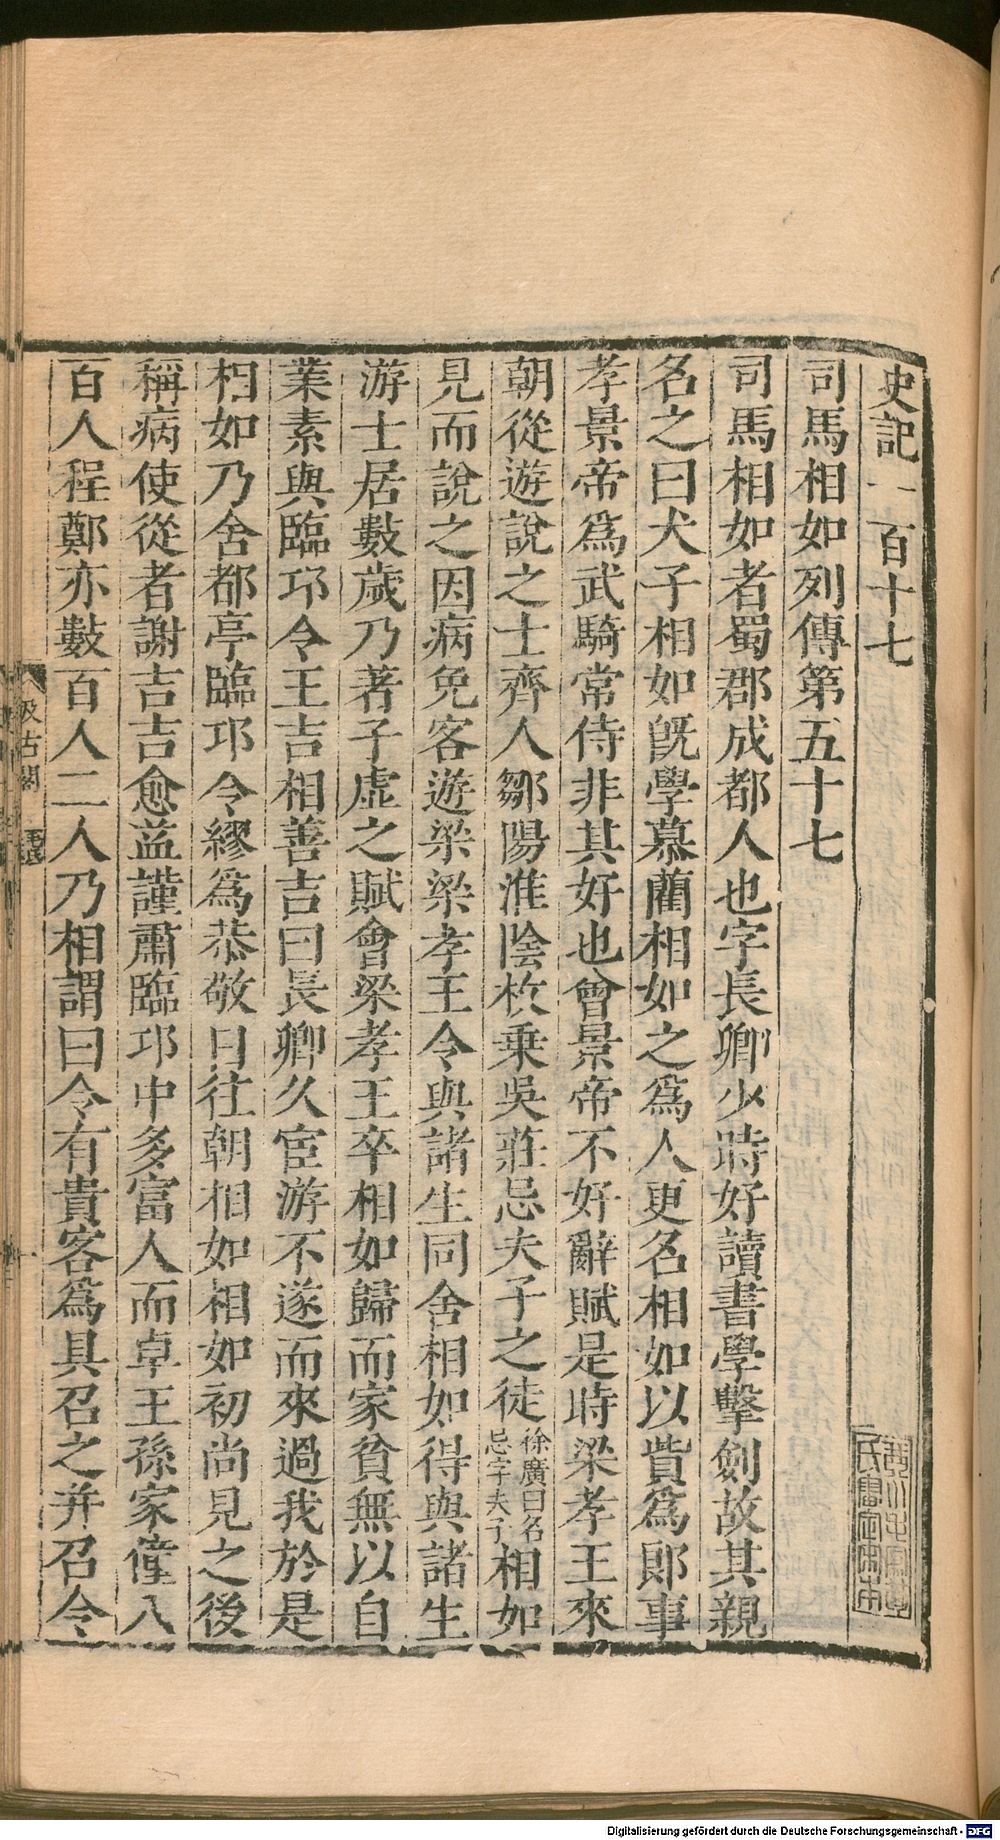 史記一百十七
司馬相如列傳第五十七
司馬相如者蜀郡成都人也字長卿少時好讀書學擊劍故其親
名之曰犬子相如旣學慕藺相如之爲人更名相如以貲爲郞事
孝景帝爲武騎常侍非其好也會景帝不好辭賦是時梁孝王來
朝從遊說之士齊人鄒陽淮陰枚乗吳莊忌夫子之徒徐廣曰名忌字夫子相如
見而說之因病免客遊梁梁孝王令與諸生同舍相如得與諸生
游士居數歲乃著子虛之賦會梁孝王卒相如歸而家貧無以自
業素與臨邛令王吉相善吉曰長卿久宦游不遂而來過我於是
相如乃舍都亭臨邛令繆爲恭敬日往朝相如相如初尚見之後
稱病使從者謝吉吉愈益謹肅臨邛中多富人而卓王孫家僮八
百人程鄭亦數百人二人乃相謂曰令有貴客爲具召之并召令
汲古閣
Digitalisierung gefördert durch die Deutsche Forschungsgemeinschaft - DFG